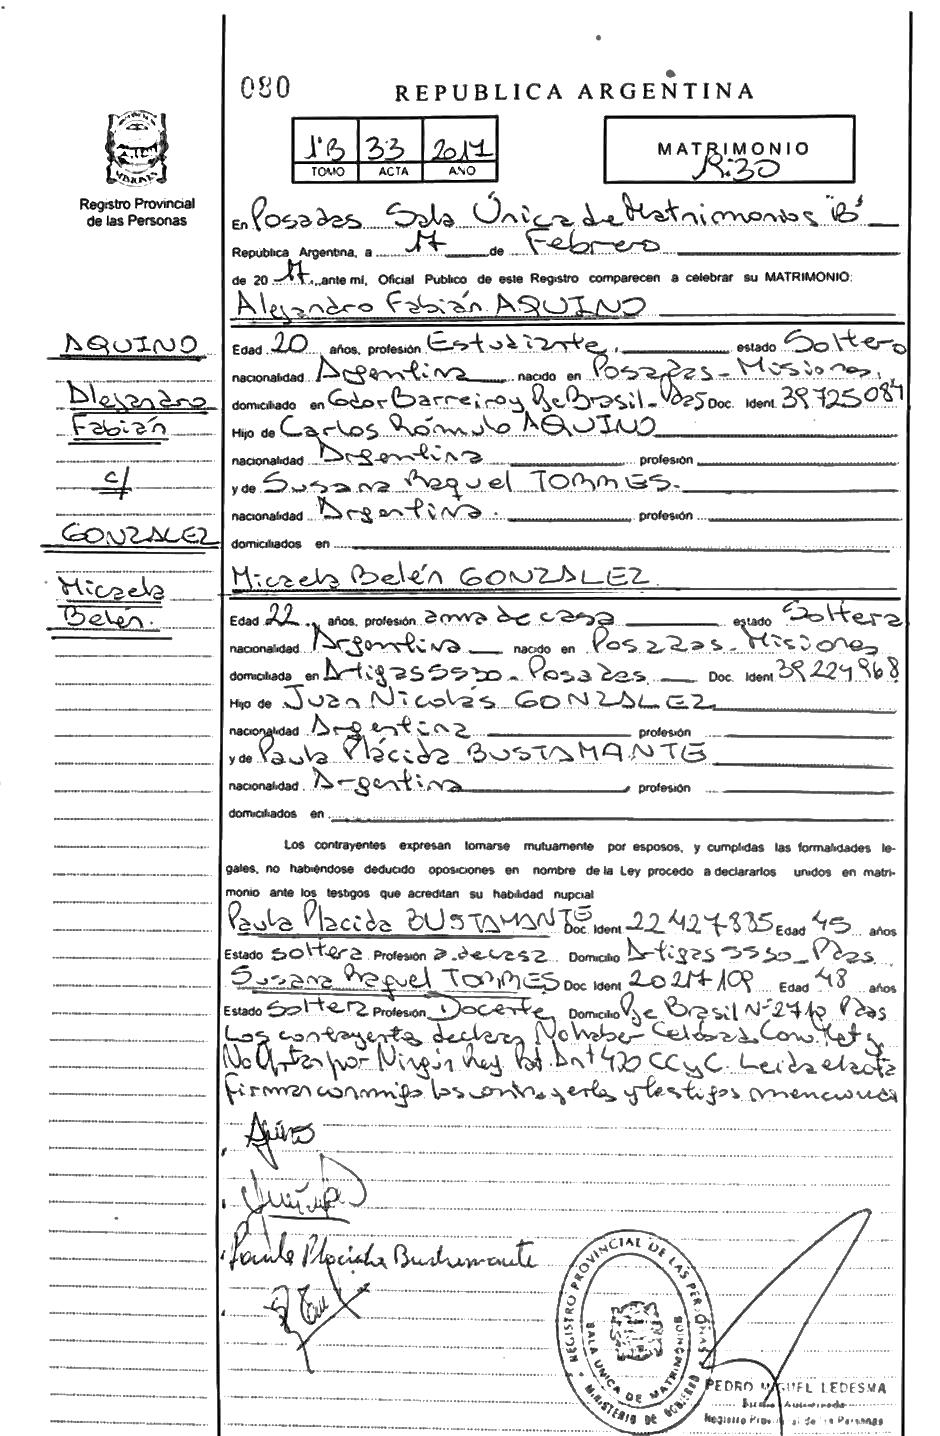 080
REPUBLICA ARGENTINA
1ºB 33 2017
TOMO ACTA AÑO
MATRIMONIO
R:30
Registro Provincial
de las Personas
En Posadas Sala Única de Matrimonios "B"
Republica Argentina, a 17 de Febrero
de 20 17 ante mí, Oficial Publico de este Registro comparecen a celebrar su MATRIMONIO:
Alejandro Fabián AQUINO
AQUINO
Alejandro
Fabián
c/
GONZALEZ
Micaela
Belén.
Edad 20 años, profesión Estudiante. estado Soltero
nacionalidad Argentina nacido en Posadas - Misiones.
domiciliado en Gdor Barreiro y Pje Brasil - Pdas Doc. Ident. 39725084
Hijo de Carlos Rómulo AQUINO
nacionalidad Argentina profesión
y de Susana Raquel TORRES.
nacionalidad Argentina. profesión
domiciliados en
Micaela Belén GONZALEZ
Edad 22 años, profesión ama de casa estado Soltera
nacionalidad Argentina nacido en Posadas - Misiones
domiciliada en Artigas 5530 - Posadas Doc. Ident 39224968
Hijo de Juan Nicolás GONZALEZ
nacionalidad Argentina profesión
y de Paula Plácida BUSTAMANTE
nacionalidad Argentina profesión
domiciliados en
Los contrayentes expresan tomarse mutuamente por esposos, y cumplidas las formalidades le-
gales, no habiéndose deducido oposiciones en nombre de la Ley procedo a declararlos unidos en matri-
monio ante los testigos que acreditan su habilidad nupcial
Paula Placida BUSTAMANTE Doc. Ident 22427835 Edad 45 años
Estado soltera Profesión a.de casa Domicilio Artigas 5530 - Pdas
Susana Raquel TORRES Doc Ident 20217109 Edad 48 años
Estado Soltera Profesión Docente Domicilio Pje Brasil Nº 2710 Pdas
Los contrayentes declaran No haber Celebrado Conv. Mat y
No Optar por Ningún Reg Pat. Art 420 CCyC. Leida el acta
firman conmigo los contrayentes y testigos mencionados
Aquino
Paula Placida Bustamante
REGISTRO PROVINCIAL DE LAS PERSONAS
SALA UNICA DE MATRIMONIOS
MINISTERIO DE GOBIERNO
PEDRO MIGUEL LEDESMA
Registro Provincial de las Personas